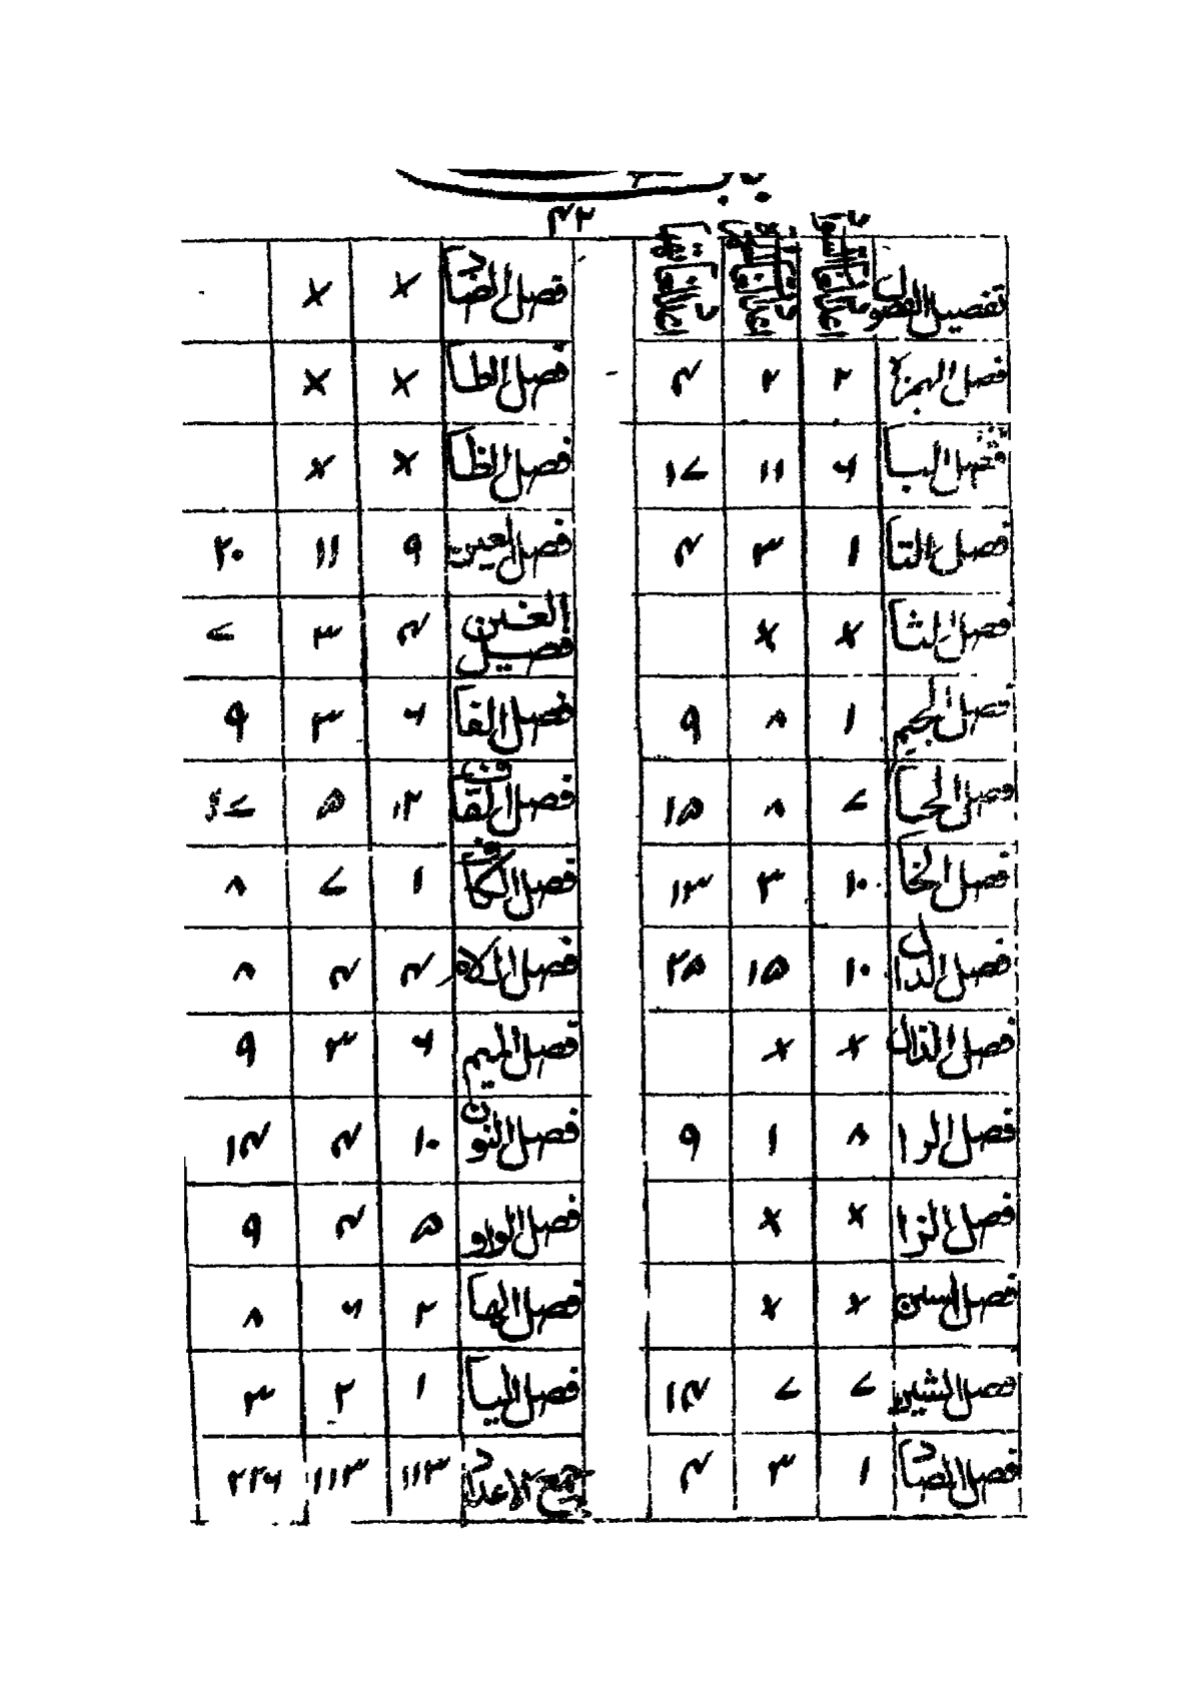 ۴۲
تفصيل الفصول
فصل الهمزة ۲ ۲ ۴
فصل البا ۶ ۱۱ ۱۷
فصل التا ۱ ۳ ۴
فصل الثا × ×
فصل الجيم ۱ ۸ ۹
فصل الحا ۷ ۸ ۱۵
فصل الخا ۱۰ ۳ ۱۳
فصل الدال ۱۰ ۱۵ ۲۵
فصل الذال × ×
فصل الرا ۸ ۱ ۹
فصل الزا × ×
فصل السين × ×
فصل الشين ۷ ۷ ۱۴
فصل الصاد ۱ ۳ ۴
فصل الضاد × ×
فصل الطا × ×
فصل الظا × ×
فصل العين ۹ ۱۱ ۲۰
فصل الغين ۴ ۳ ۷
فصل الفا ۶ ۳ ۹
فصل القاف ۱۲ ۵ ۱۷
فصل الكاف ۱ ۷ ۸
فصل اللام ۴ ۴ ۸
فصل الميم ۶ ۳ ۹
فصل النون ۱۰ ۴ ۱۴
فصل الواو ۵ ۴ ۹
فصل الها ۲ ۶ ۸
فصل اليا ۱ ۲ ۳
جميع الاعداد ۱۱۳ ۱۱۳ ۲۲۶